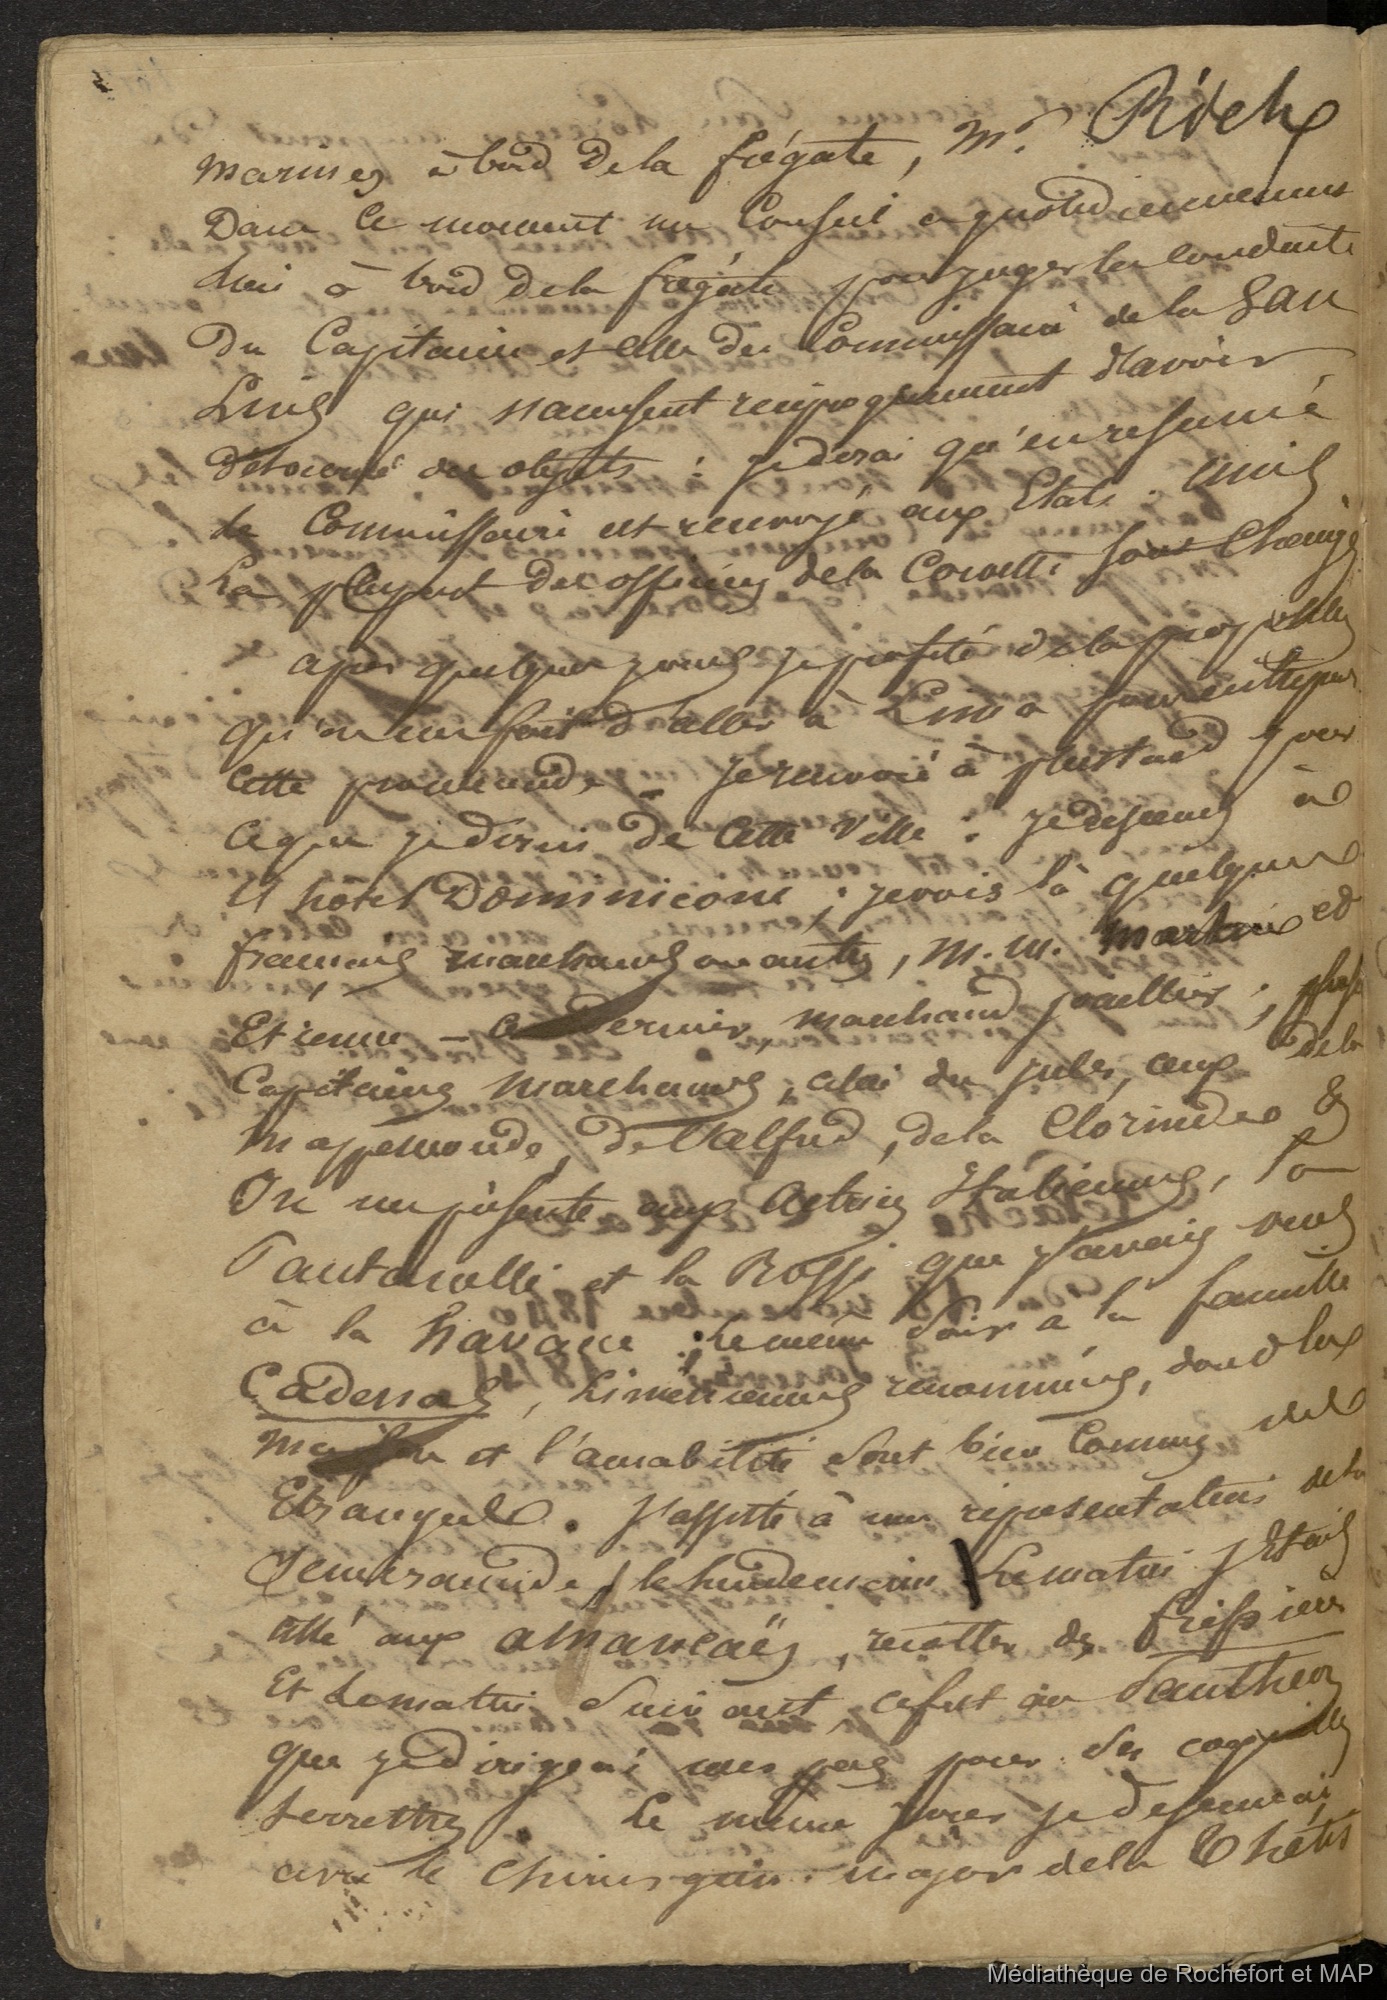 marines à bord de la frégate, Mr. Ritch
Dans ce moment un Conseil a quotidiennement
lieu à bord de la frégate pour juger la conduite
du Capitaine et celle du Commissaire de la San
Luis qui s'accusent reciproquement d'avoir
détourné des objets : je dirai qu'en resumé
le Commissaire est renvoyé aux Etats-unis
La plupart des officiers de la Corvette sont changés
apres quelques jours je profite de la
qu'on me fait d'aller à Lima
cette promenade _ je renvoie à plustard pour
ce que je dirai de cette ville : je descends à
l'hotel Dominicone ; je vois là quelques
francais marchands ou autres, M. M. Martin et
Etienne – ce dernier, marchand joaillier ; plus
Capitaines marchands, celui du jules, ceux de la
Mappemonde, de l'alfred, de la Clorinde &
On me présente aux Actrices Italiennes, la
Pantanelli et la Rossi que j'avais vues
à la havane : le même soir à la famille
Cadenas, Liméniennes renommées, dont la
maison et l'amabilité sont bien connues des
Etrangers. j'assiste à une représentation de la
Semiramide / le lendemain Le matin j'Etais
allé aux amancaës,
Et le matin suivant, ce fut au Pantheon
que je dirigeai mes pas pour des coquilles
terrestres. Le même jour je descendais
avec le chirurgien-major de la Thétis
Médiathèque de Rochefort et MAP